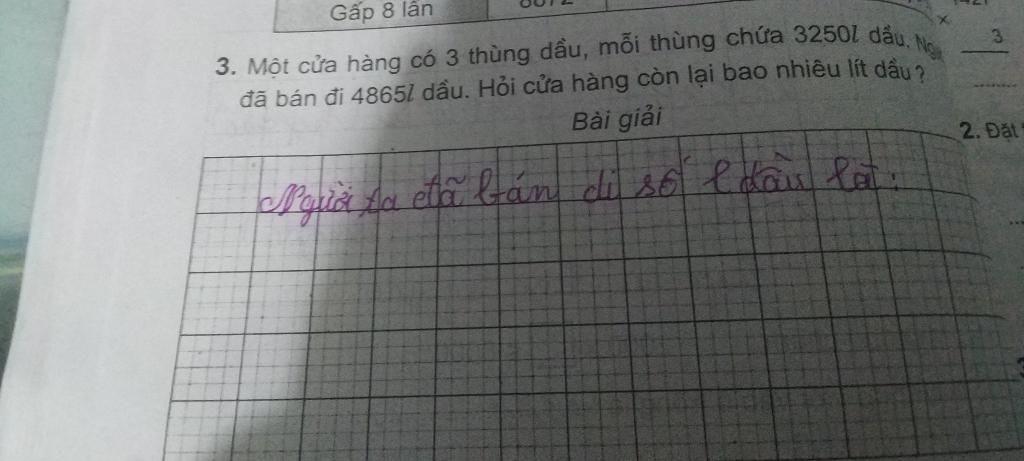 Gấp 8 lần
x
3
3. Một cửa hàng có 3 thùng dầu, mỗi thùng chứa 3250l dầu.
đã bán đi 4865l dầu. Hỏi cửa hàng còn lại bao nhiêu lít dầu?
Bài giải
2. Đặt
Người ta đã bán đi số l dầu là: